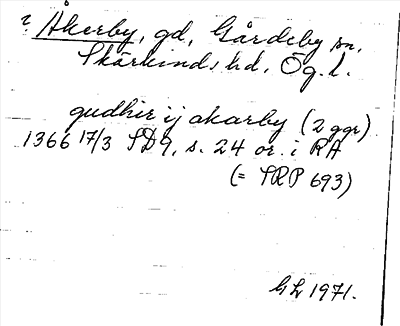 ? Åkerby, gd, Gårdeby sn,
Skärkinds hd, Ög. l.
gudhir ij akarby (2 ggr)
1366 17/3 SD9, s. 24 or. i RA
(= SRP 693)
GL 1971.